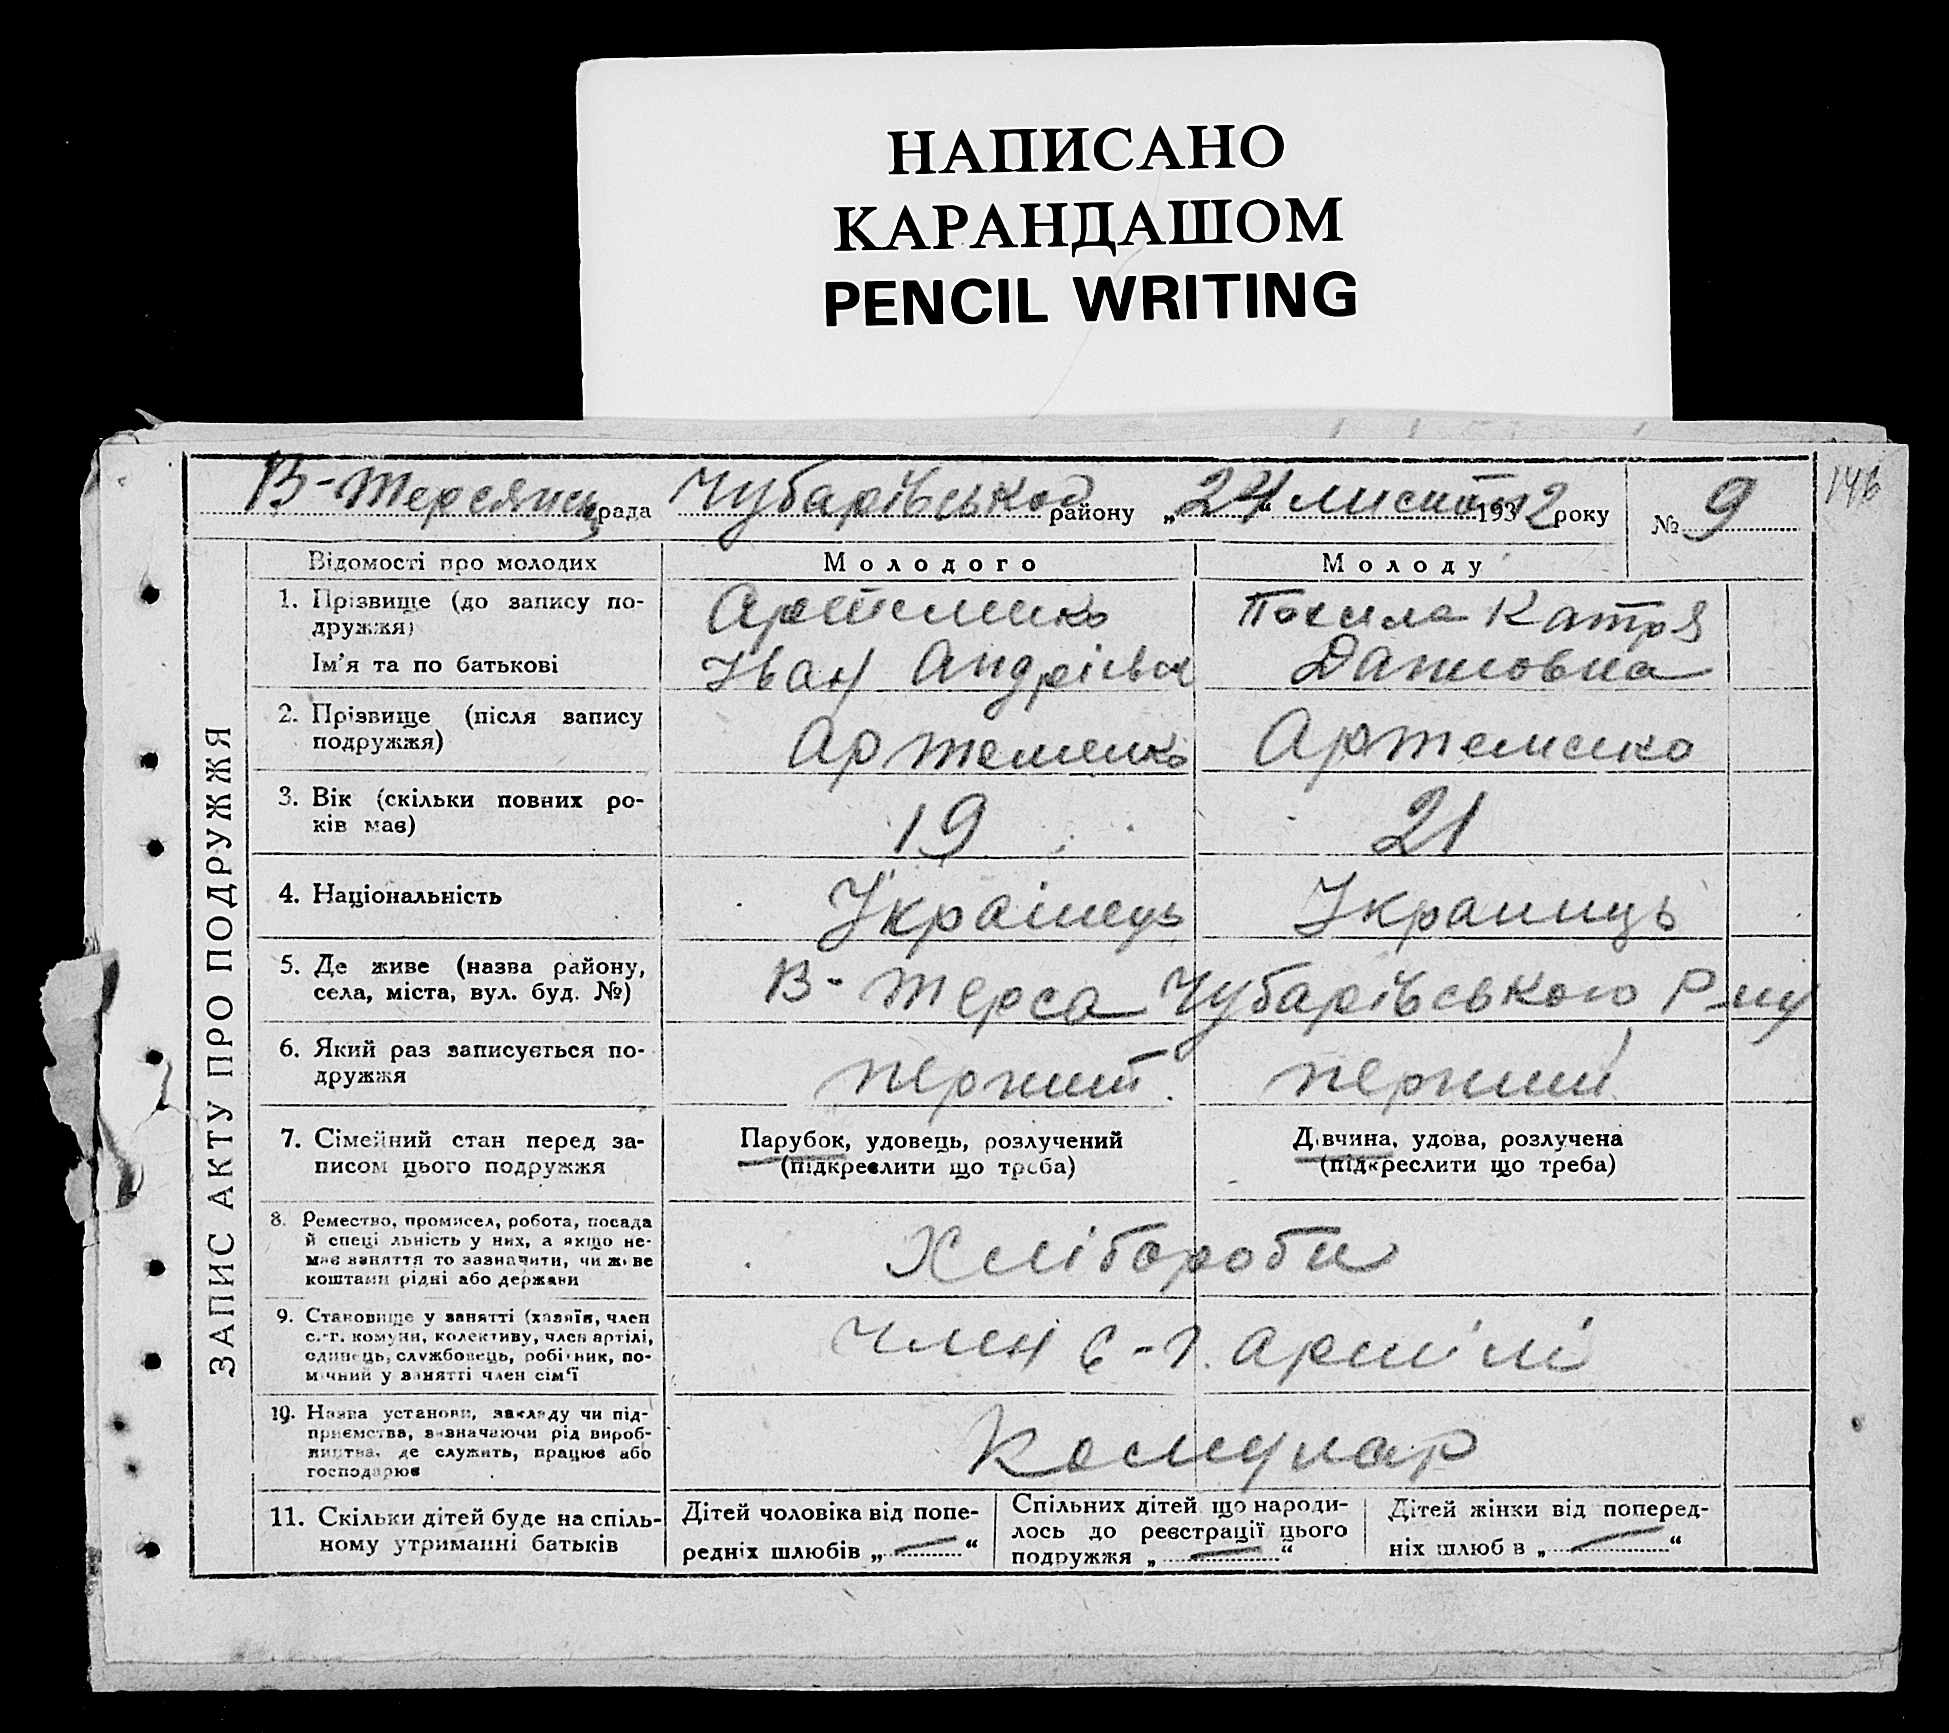 НАПИСАНО
КАРАНДАШОМ
PENCIL WRITING
146
В-Терсянська рада Чубарівського району „24“ лист 1932 року № 9
ЗАПИС АКТУ ПРО ПОДРУЖЖЯ
Відомості про молодих
Молодого
Молоду
1. Прізвище (до запису по-
дружжя)
Ім'я та по батькові
Артеменко
Іван Андрієвич
Катря
Даниловна
2. Прізвище (після запису
подружжя)
Артеменко
Артеменко
3. Вік (скільки повних ро-
ків має)
19
21
4. Національність
Украінець
Украинць
5. Де живе (назва району,
села, міста, вул. буд. №)
В-Терса Чубарівського Р-ну
6. Який раз записується по-
дружжя
перший
перший
7. Сімейний стан перед за-
писом цього подружжя
Парубок, удовець, розлучений
(підкреслити що треба)
Дівчина, удова, розлучена
(підкреслити що треба)
8. Ремество, промисел, робота, посада
й спеціяльність у них, а якщо не-
має заняття то зазначити, чи живе
коштами рідні або держави
Хлібороби
9. Становище у занятті (хазяїн, член
с.-г. комуни, колективу, член артілі,
одинець, службовець, робітник, по-
мічний у занятті член сім'ї
Член с-г. артілі
10. Назва установи, закладу чи під-
приємства, зазначаючи рід вироб-
ництва, де служить, працює або
господарює
Комунар
11. Скільки дітей буде на спіль-
ному утриманні батьків
Дітей чоловіка від попе-
редніх шлюбів „ — “
Спільних дітей що народи-
лось до реєстрації цього
подружжя „ — “
Дітей жінки від поперед-
ніх шлюбів „ — “